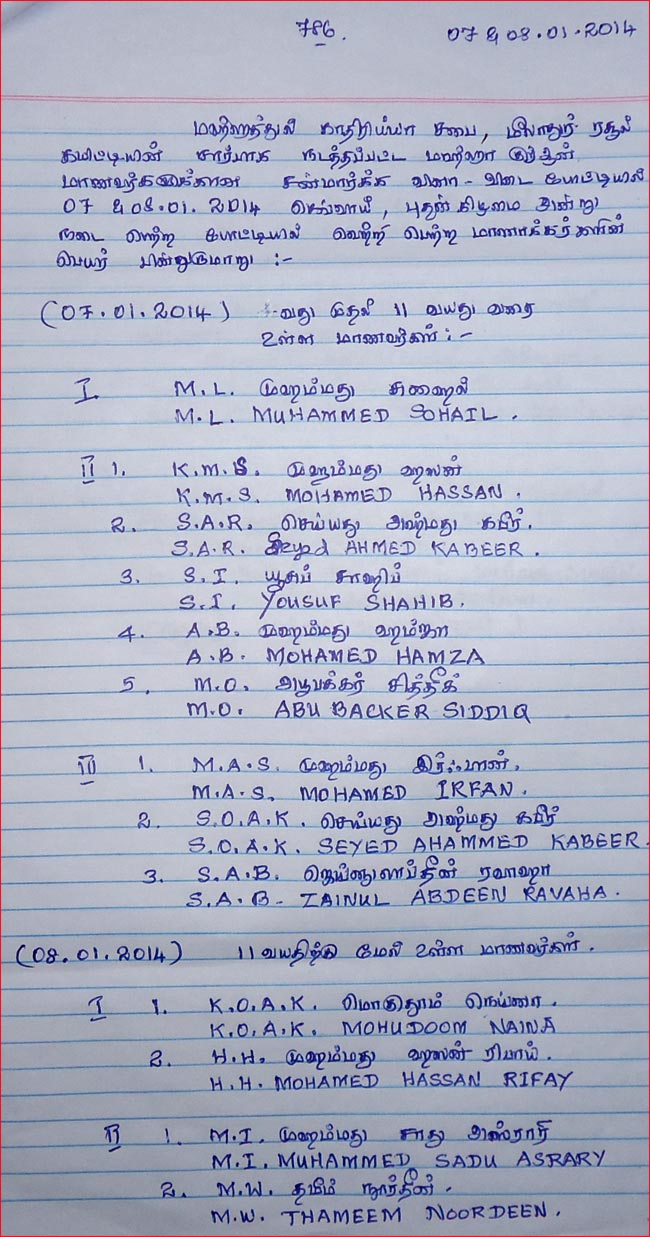 786.
07 & 08.01.2014
மஹ்ழரத்துல் காதிரிய்யா சபை, மீலாதுர் ரசூல்
கமிட்டியின் சார்பாக நடத்தப்பட்ட மஹ்ழரா குர்ஆன்
மாணவர்களுக்கான சன்மார்க்க வினா - விடை போட்டியில்
07 & 08.01.2014 செவ்வாய், புதன் கிழமை அன்று
நடை பெற்ற போட்டியில் வெற்றி பெற்ற மாணாக்கர்களின்
பெயர் பின்வருமாறு :-
(07.01.2014) வது முதல் 11 வயது வரை
உள்ள மாணவர்கள் :-
I M.L. முஹம்மது சுஹைல்
M.L. MUHAMMED SOHAIL.
II 1. K.M.S. முஹம்மது ஹஸன்
K.M.S. MOHAMED HASSAN.
2. S.A.R. செய்யது அஹ்மது கபீர்.
S.A.R. Seyed AHMED KABEER.
3. S.I. யூசுப் சாஹிப்
S.I. YOUSUF SHAHIB.
4. A.B. முஹம்மது ஹம்ஸா
A.B. MOHAMED HAMZA
5. M.O. அபூபக்கர் சித்தீக்
M.O. ABU BACKER SIDDIQ
III 1. M.A.S. முஹம்மது இர்ஃபான்.
M.A.S. MOHAMED IRFAN.
2. S.O.A.K. செய்யது அஹ்மது கபீர்
S.O.A.K. SEYED AHAMMED KABEER.
3. S.A.B. ஜெய்னுலாப்தீன் ரவாஹா
S.A.B- ZAINUL ABDEEN RAVAHA.
(08.01.2014) 11 வயதிற்கு மேல் உள்ள மாணவர்கள்.
I 1. K.O.A.K. மொகுதூம் நெய்னா.
K.O.A.K. MOHUDOOM NAINA
2. H.H. முஹம்மது ஹஸன் ரிபாய்.
H.H. MOHAMED HASSAN RIFAY
II 1. M.I. முஹம்மது சாது அஸ்ராரி
M.I. MUHAMMED SADU ASRARY
2. M.W. தமீம் நூர்தீன்.
M.W. THAMEEM NOORDEEN.